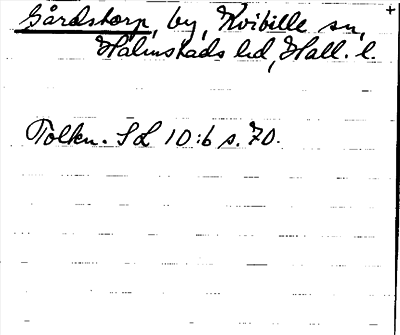 Gårdstorp, by, Kvibille sn, +
Halmstads hd, Hall. l.
Tolkn. SL 10:6 s. 70.